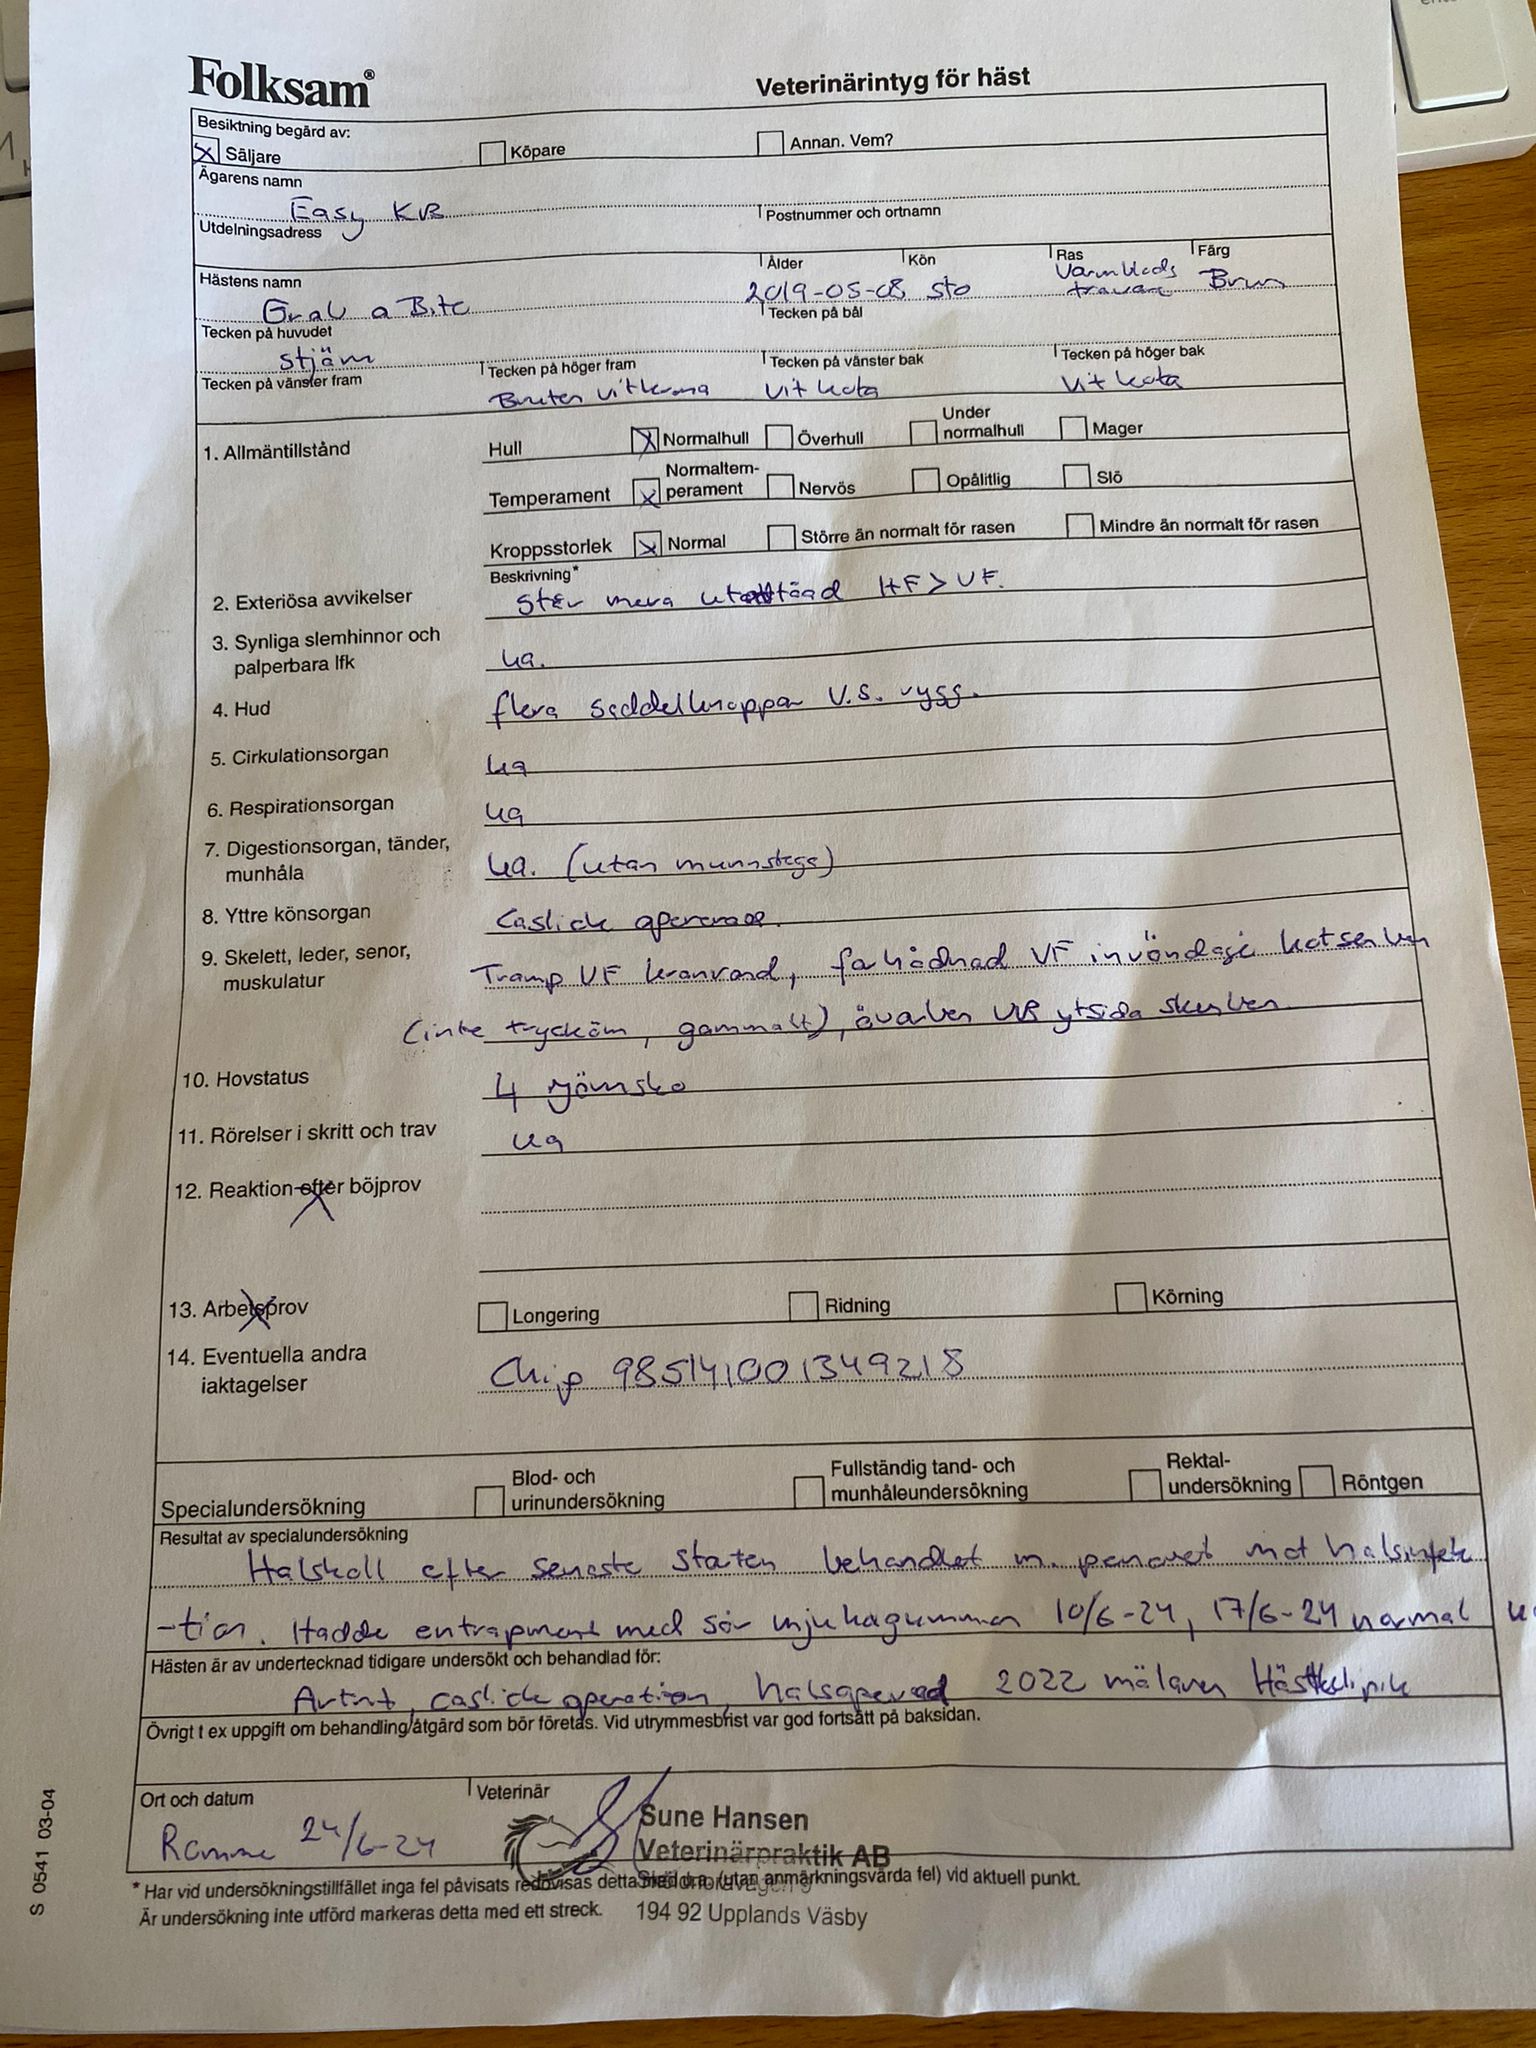 Folksam®
Veterinärintyg för häst
Besiktning begärd av:
Säljare Köpare Annan. Vem?
Ägarens namn
Easy KB
Utdelningsadress Postnummer och ortnamn
Hästens namn Ålder Kön Ras Färg
Grab a Bite 2019-05-08 sto Varmblods travare Brun
Tecken på huvudet Tecken på bål
stjärn
Tecken på vänster fram Tecken på höger fram Tecken på vänster bak Tecken på höger bak
Bruten vitkrona vit kota vit kota
1. Allmäntillstånd Hull Normalhull Överhull Under normalhull Mager
Temperament Normaltem-perament Nervös Opålitlig Slö
Kroppsstorlek Normal Större än normalt för rasen Mindre än normalt för rasen
Beskrivning*
2. Exteriösa avvikelser står mera utåttåad HF > VF.
3. Synliga slemhinnor och
palperbara lfk ua.
4. Hud flera saddelknoppar V.S. rygg.
5. Cirkulationsorgan ua
6. Respirationsorgan ua
7. Digestionsorgan, tänder,
munhåla ua. (utan munstege)
8. Yttre könsorgan Caslick opererad.
9. Skelett, leder, senor,
muskulatur Tramp VF kronrand, förhådnad VF invändiga kotsenben
(inte tryköm, gammalt), överben VB ytsida skenben
10. Hovstatus 4 rjömsko
11. Rörelser i skritt och trav ua
12. Reaktion efter böjprov
13. Arbetsprov Longering Ridning Körning
14. Eventuella andra
iaktagelser Chip 985141001349218
Specialundersökning Blod- och urinundersökning Fullständig tand- och munhåleundersökning Rektal-undersökning Röntgen
Resultat av specialundersökning
Halskoll efter senaste starten behandlat m. penovet mot halsinfek
-tion. Hadde entrapment med sår mjukagummen 10/6-24, 17/6-24 normal
Hästen är av undertecknad tidigare undersökt och behandlad för:
Artrit, caslick operation, halsopererad 2022 mälaren Hästklinik
Övrigt t ex uppgift om behandling/åtgärd som bör företas. Vid utrymmesbrist var god fortsätt på baksidan.
Ort och datum Veterinär
24/6-24
Sune Hansen
Veterinärpraktik AB
194 92 Upplands Väsby
* Har vid undersökningstillfället inga fel påvisats redovisas detta med u.a. (utan anmärkningsvärda fel) vid aktuell punkt.
Är undersökning inte utförd markeras detta med ett streck.
S 0541 03-04